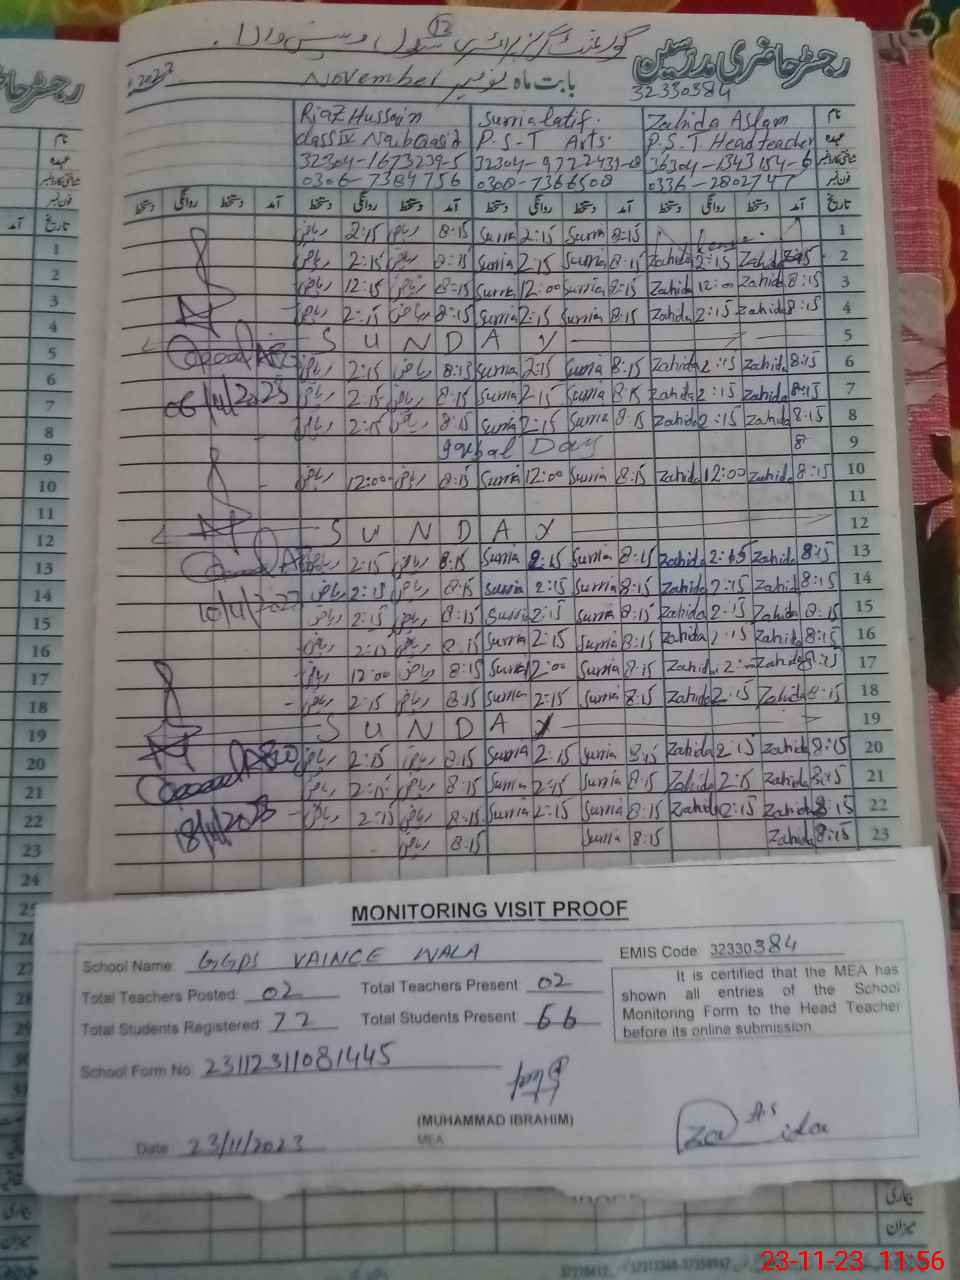 12
رجسٹر حاضری مدرسین
32330384
بابت ماہ نومبر November 2023
Riaz Hussain Surria latif. Zahida Aslam نام
class IV P.S.T Arts. P.S.T. Head teacher عہدہ
32304-1673239-5
0306-7384756 0308-7366508 0336-2802747 فون نمبر
دستخط روانگی دستخط آمد دستخط روانگی دستخط آمد دستخط روانگی دستخط آمد دستخط روانگی دستخط آمد تاریخ
ریاض 2:15 ریاض 8:15 Surria 2:15 Surria 8:15 1
ریاض 2:15 ریاض 8:15 Surria 2:15 Surria 8:15 Zahida 2:15 Zahida 8:15 2
ریاض 12:15 ریاض 8:15 Surria 12:00 Surria 8:15 Zahida 12:00 Zahida 8:15 3
ریاض 2:15 ریاض 8:15 Surria 2:15 Surria 8:15 Zahida 2:15 Zahida 8:15 4
S U N D A Y 5
ریاض 2:15 ریاض 8:15 Surria 2:15 Surria 8:15 Zahida 2:15 Zahida 8:15 6
06/11/2023 ریاض 2:15 ریاض 8:15 Surria 2:15 Surria 8:15 Zahida 2:15 Zahida 8:15 7
ریاض 2:15 ریاض 8:15 Surria 2:15 Surria 8:15 Zahida 2:15 Zahida 8:15 8
Day 8 9
ریاض 12:00 ریاض 8:15 Surria 12:00 Surria 8:15 Zahida 12:00 Zahida 8:15 10
11
S U N D A Y 12
ریاض 2:15 ریاض 8:15 Surria 2:15 Surria 8:15 Zahida 2:15 Zahida 8:15 13
ریاض 2:15 ریاض 8:15 Surria 2:15 Surria 8:15 Zahida 2:15 Zahida 8:15 14
ریاض 2:15 ریاض 8:15 Surria 2:15 Surria 8:15 Zahida 2:15 Zahida 8:15 15
ریاض 2:15 ریاض 8:15 Surria 2:15 Surria 8:15 Zahida 2:15 Zahida 8:15 16
ریاض 12:00 ریاض 8:15 Surria 12:00 Surria 8:15 Zahida Zahida 8:15 17
ریاض 2:15 ریاض 8:15 Surria 2:15 Surria 8:15 Zahida 2:15 Zahida 8:15 18
S U N D A Y 19
ریاض 2:15 ریاض 8:15 Surria 2:15 Surria 8:15 Zahida 2:15 Zahida 8:15 20
ریاض 2:15 ریاض 8:15 Surria 2:15 Surria 8:15 Zahida 2:15 Zahida 8:15 21
18/11/2023 ریاض 2:15 ریاض 8:15 Surria 2:15 Surria 8:15 Zahida 2:15 Zahida 8:15 22
ریاض 8:15 Surria 8:15 Zahida 8:15 23
MONITORING VISIT PROOF
School Name: GGPS VAINCE WALA EMIS Code 32330384
Total Teachers Posted: 02 Total Teachers Present 02
Total Students Registered: 72 Total Students Present 66
It is certified that the MEA has
shown all entries of the School
Monitoring Form to the Head Teacher
before its online submission
School Form No. 23112311081445
(MUHAMMAD IBRAHIM)
MEA
Date 23/11/2023
میزان
23-11-23 11:56